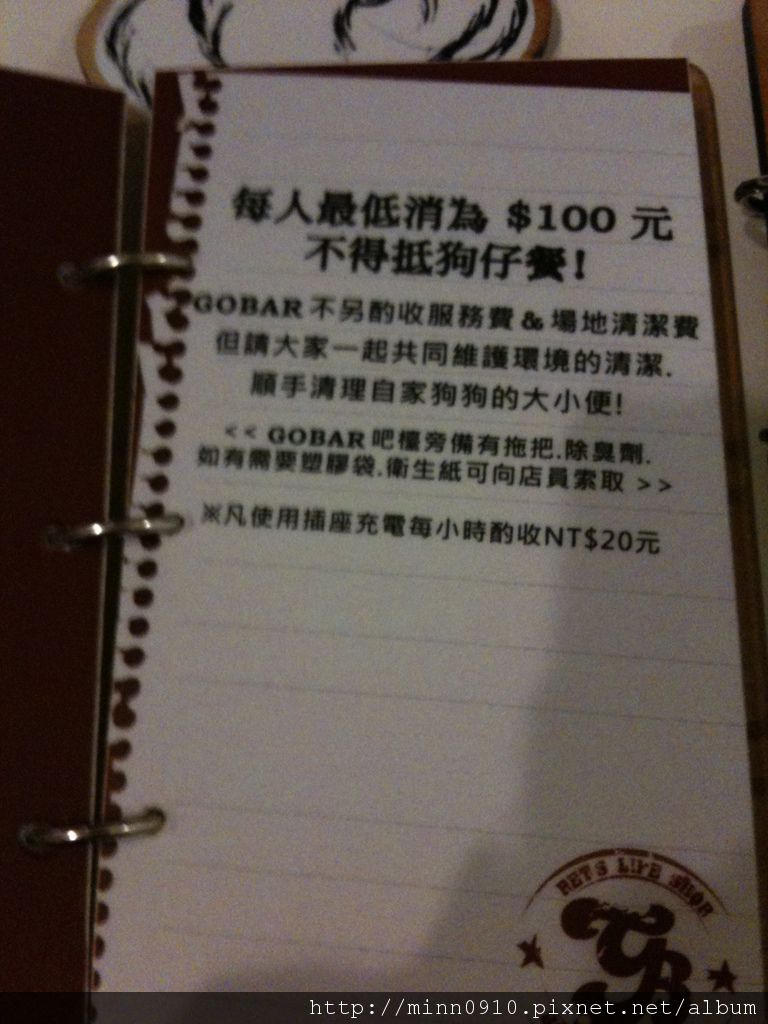 每人最低消為 $100 元
不得抵狗仔餐!
GOBAR 不另酌收服務費 & 場地清潔費
但請大家一起共同維護環境的清潔.
順手清理自家狗狗的大小便!
<< GOBAR 吧檯旁備有拖把.除臭劑.
如有需要塑膠袋.衛生紙可向店員索取 >>
※凡使用插座充電每小時酌收NT$20元
PETS LIFE SHOP
GB
http://minn0910.pixnet.net/album